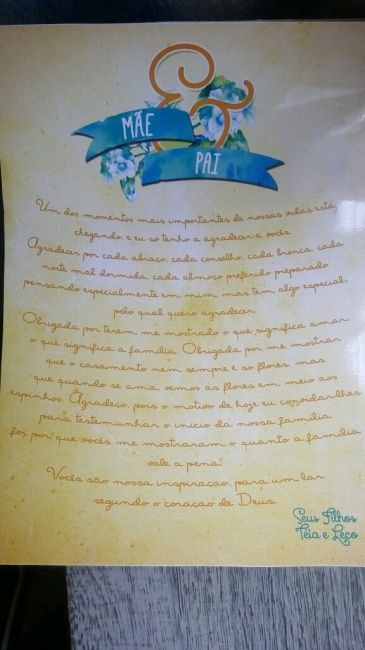 MÃE
&
PAI
Um dos momentos mais importantes de nossas vidas está
chegando, e eu só tenho a agradecer a vocês.
Agradecer por cada abraço, cada conselho, cada bronca, cada
noite mal dormida, cada almoço preferido preparado
pensando especialmente em mim, mas tem algo especial,
pelo qual quero agradecer.
Obrigada por terem me mostrado o que significa amar,
o que significa a família. Obrigada por me mostrar
que o casamento nem sempre é só flores, mas
que quando se ama vemos as flores em meio aos
espinhos. Agradeço, pois o motivo de hoje eu convidar lhes
para testemunhar o início da nossa família
foi por que vocês me mostraram o quanto a família
vale a pena.
Vocês são nossa inspiração, para um lar
segundo o coração de Deus.
Seus Filhos
Téia e Leco